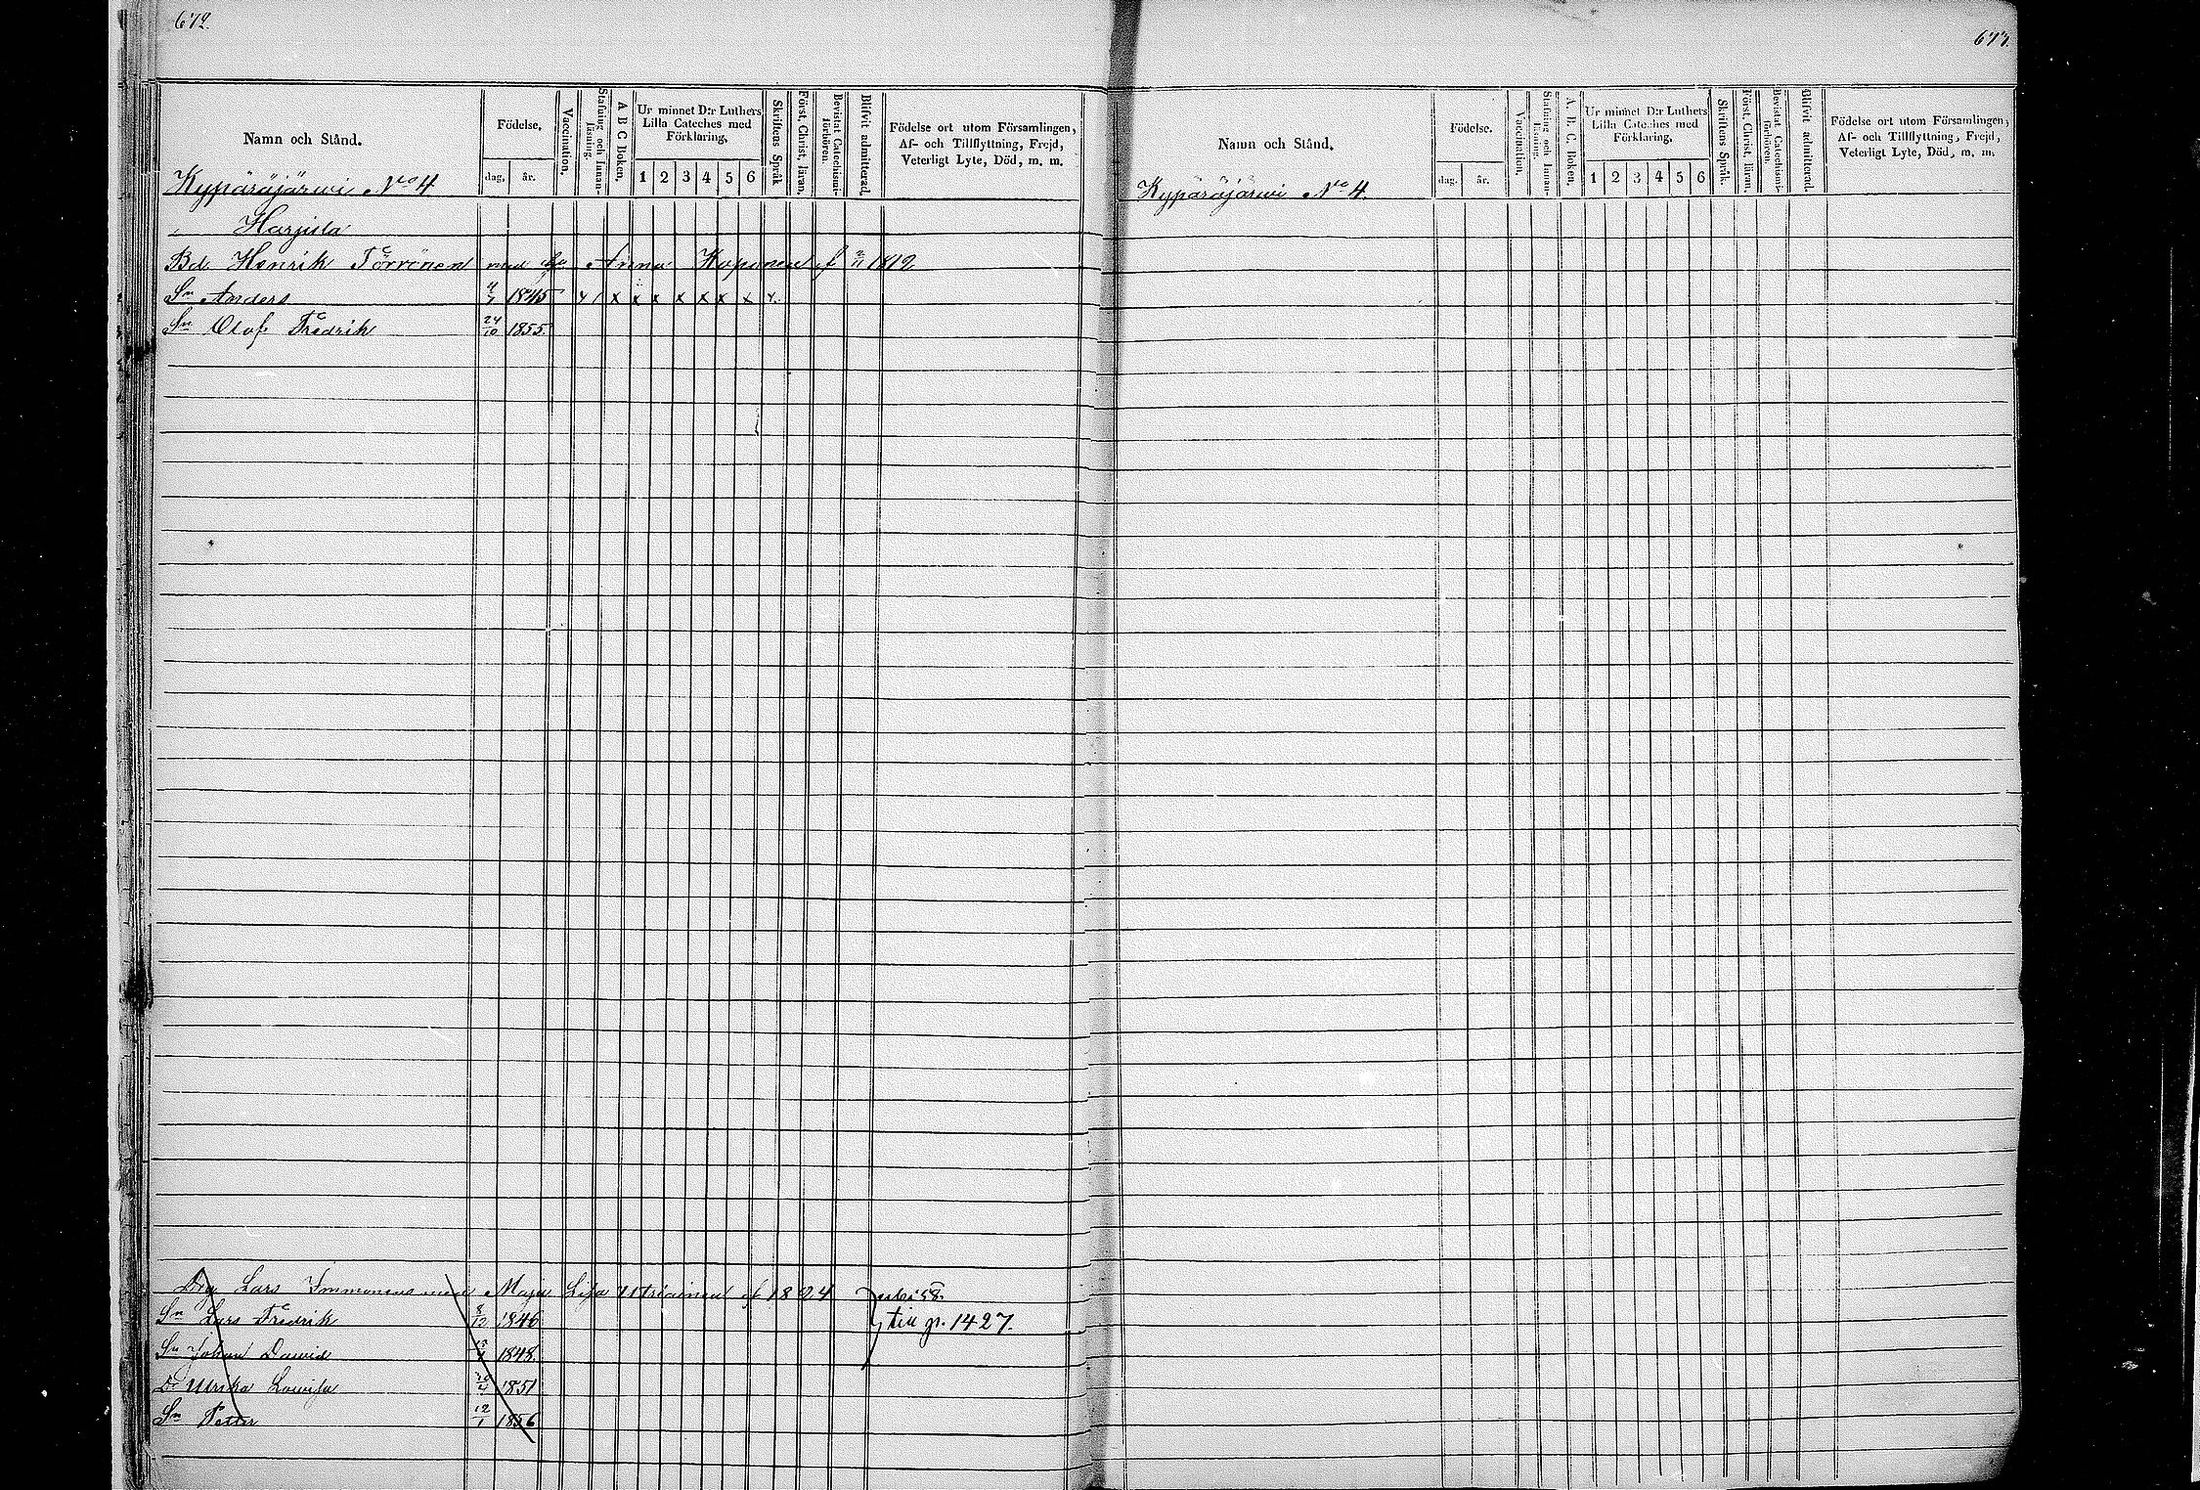 672.
Namn och Stånd.
Födelse,
dag. år.
Vaccination.
Stafning och Innanläsning.
A B C Boken.
Ur minnet D:r Luthers Lilla Cateches med Förklaring,
1 2 3 4 5 6
Skriftens Språk
Först. Christ. läran.
Bevistat Catechismiförhören.
Blifvit admitterad.
Födelse ort utom Församlingen,
Af- och Tillflyttning, Frejd,
Veterligt Lyte, Död, m. m.
Kypäräjärwi No 4
" Harjula
Bd. Henrik Törrönen med Anna Koponen f 1812
Sn Anders 1845 x x x x x x x
Sn Olof Fredrik 24/10 1855.
Lars Immonens med Maja Lisa f 1824
Sn Lars Fredrik 8/12 1846 till gr. 1427.
Sn Johan Dawid 1848.
Dr Ulrika Lowisa 1851
Sn Petter 12/1 1856
673.
Namn och Stånd.
Födelse.
dag. år.
Vaccination,
Stafning och Innanläsning.
A. B. C. Boken,
Ur minnet D:r Luthers Lilla Cateches med Förklaring,
1 2 3 4 5 6
Skriftens Språk.
Först. Christ. läran.
Bevistat Catechismiförhören.
Blifvit admitterad.
Födelse ort utom Församlingen,
Af- och Tillflyttning, Frejd,
Veterligt Lyte, Död, m. m.
Kypäräjärwi No 4.